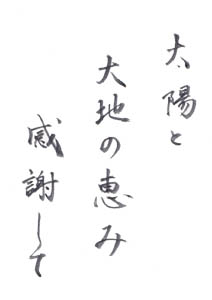 太陽と
大地の恵み
感謝して